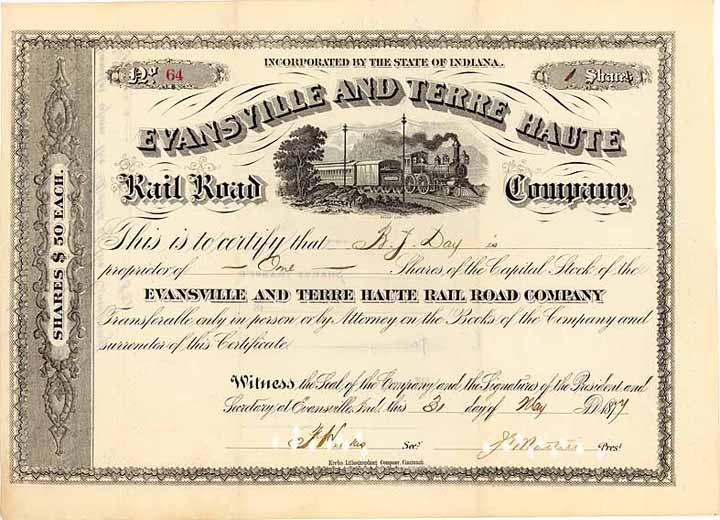 INCORPORATED BY THE STATE OF INDIANA.
No 64
1 Shares
EVANSVILLE AND TERRE HAUTE
Rail Road Company.
SHARES $50 EACH.
This is to certify that R. J. Day is
proprietor of One Shares of the Capital Stock of the
EVANSVILLE AND TERRE HAUTE RAIL ROAD COMPANY
Transferable only in person or by Attorney on the Books of the Company and
surrender of this Certificate
Witness the Seal of the Company and the Signatures of the President and
Secretary at Evansville Ind. this 31 day of May AD 1877
Secy. Prest
Krebs Lithographing Company, Cincinnati